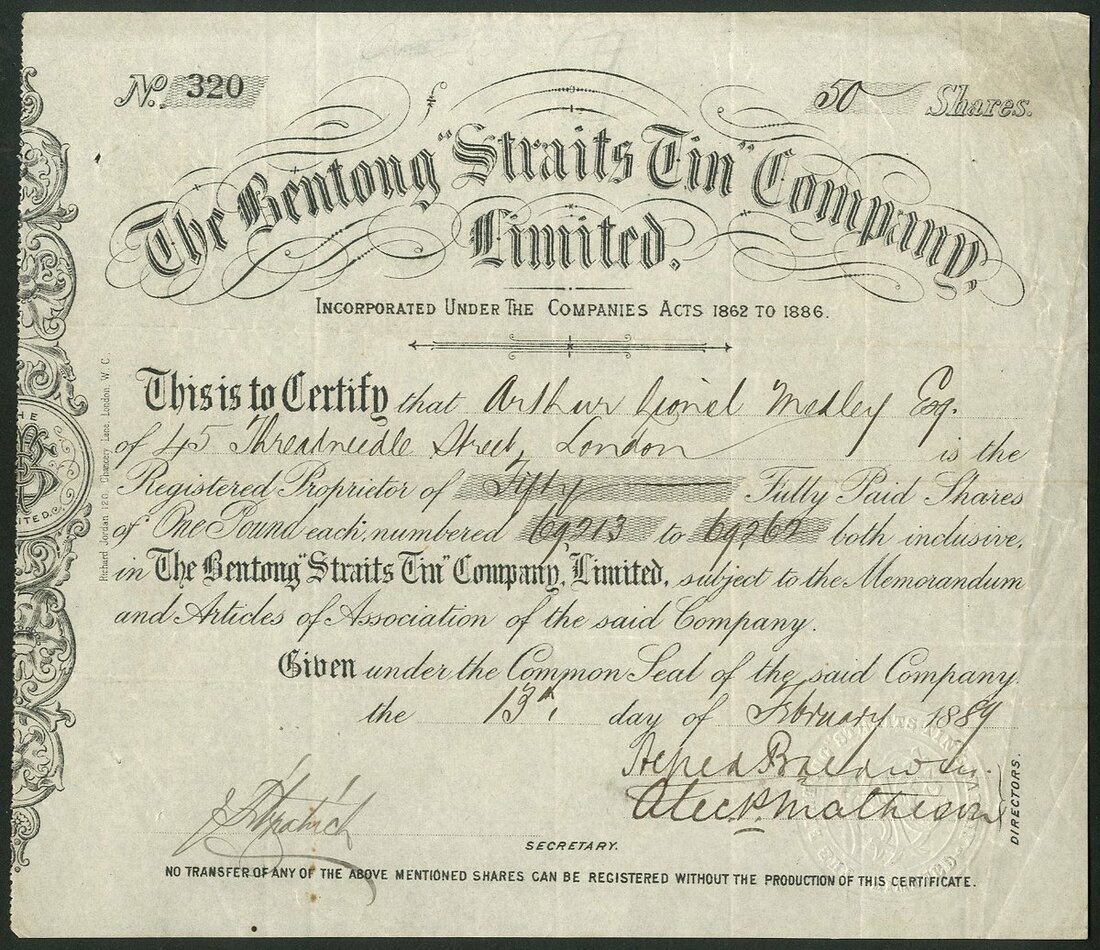 No. 320
50 Shares.
The Bentong "Straits Tin" Company,
Limited.
INCORPORATED UNDER THE COMPANIES ACTS 1862 TO 1886.
This is to Certify that Arthur Lionel Medley Esq.
of 45 Threadneedle Street, London is the
Registered Proprietor of Fifty Fully Paid Shares
of One Pound each, numbered 69213 to 69262 both inclusive,
in The Bentong "Straits Tin" Company, Limited, subject to the Memorandum
and Articles of Association of the said Company.
Given under the Common Seal of the said Company.
the 13th, day of February 1889
Alfred Baldwin
Alec P. Matheson
DIRECTORS.
J Fitzpatrick
SECRETARY.
NO TRANSFER OF ANY OF THE ABOVE MENTIONED SHARES CAN BE REGISTERED WITHOUT THE PRODUCTION OF THIS CERTIFICATE.
Richard Jordan, 120, Chancery Lane, London, W.C.
THE
LIMITED.
STRAITS TIN